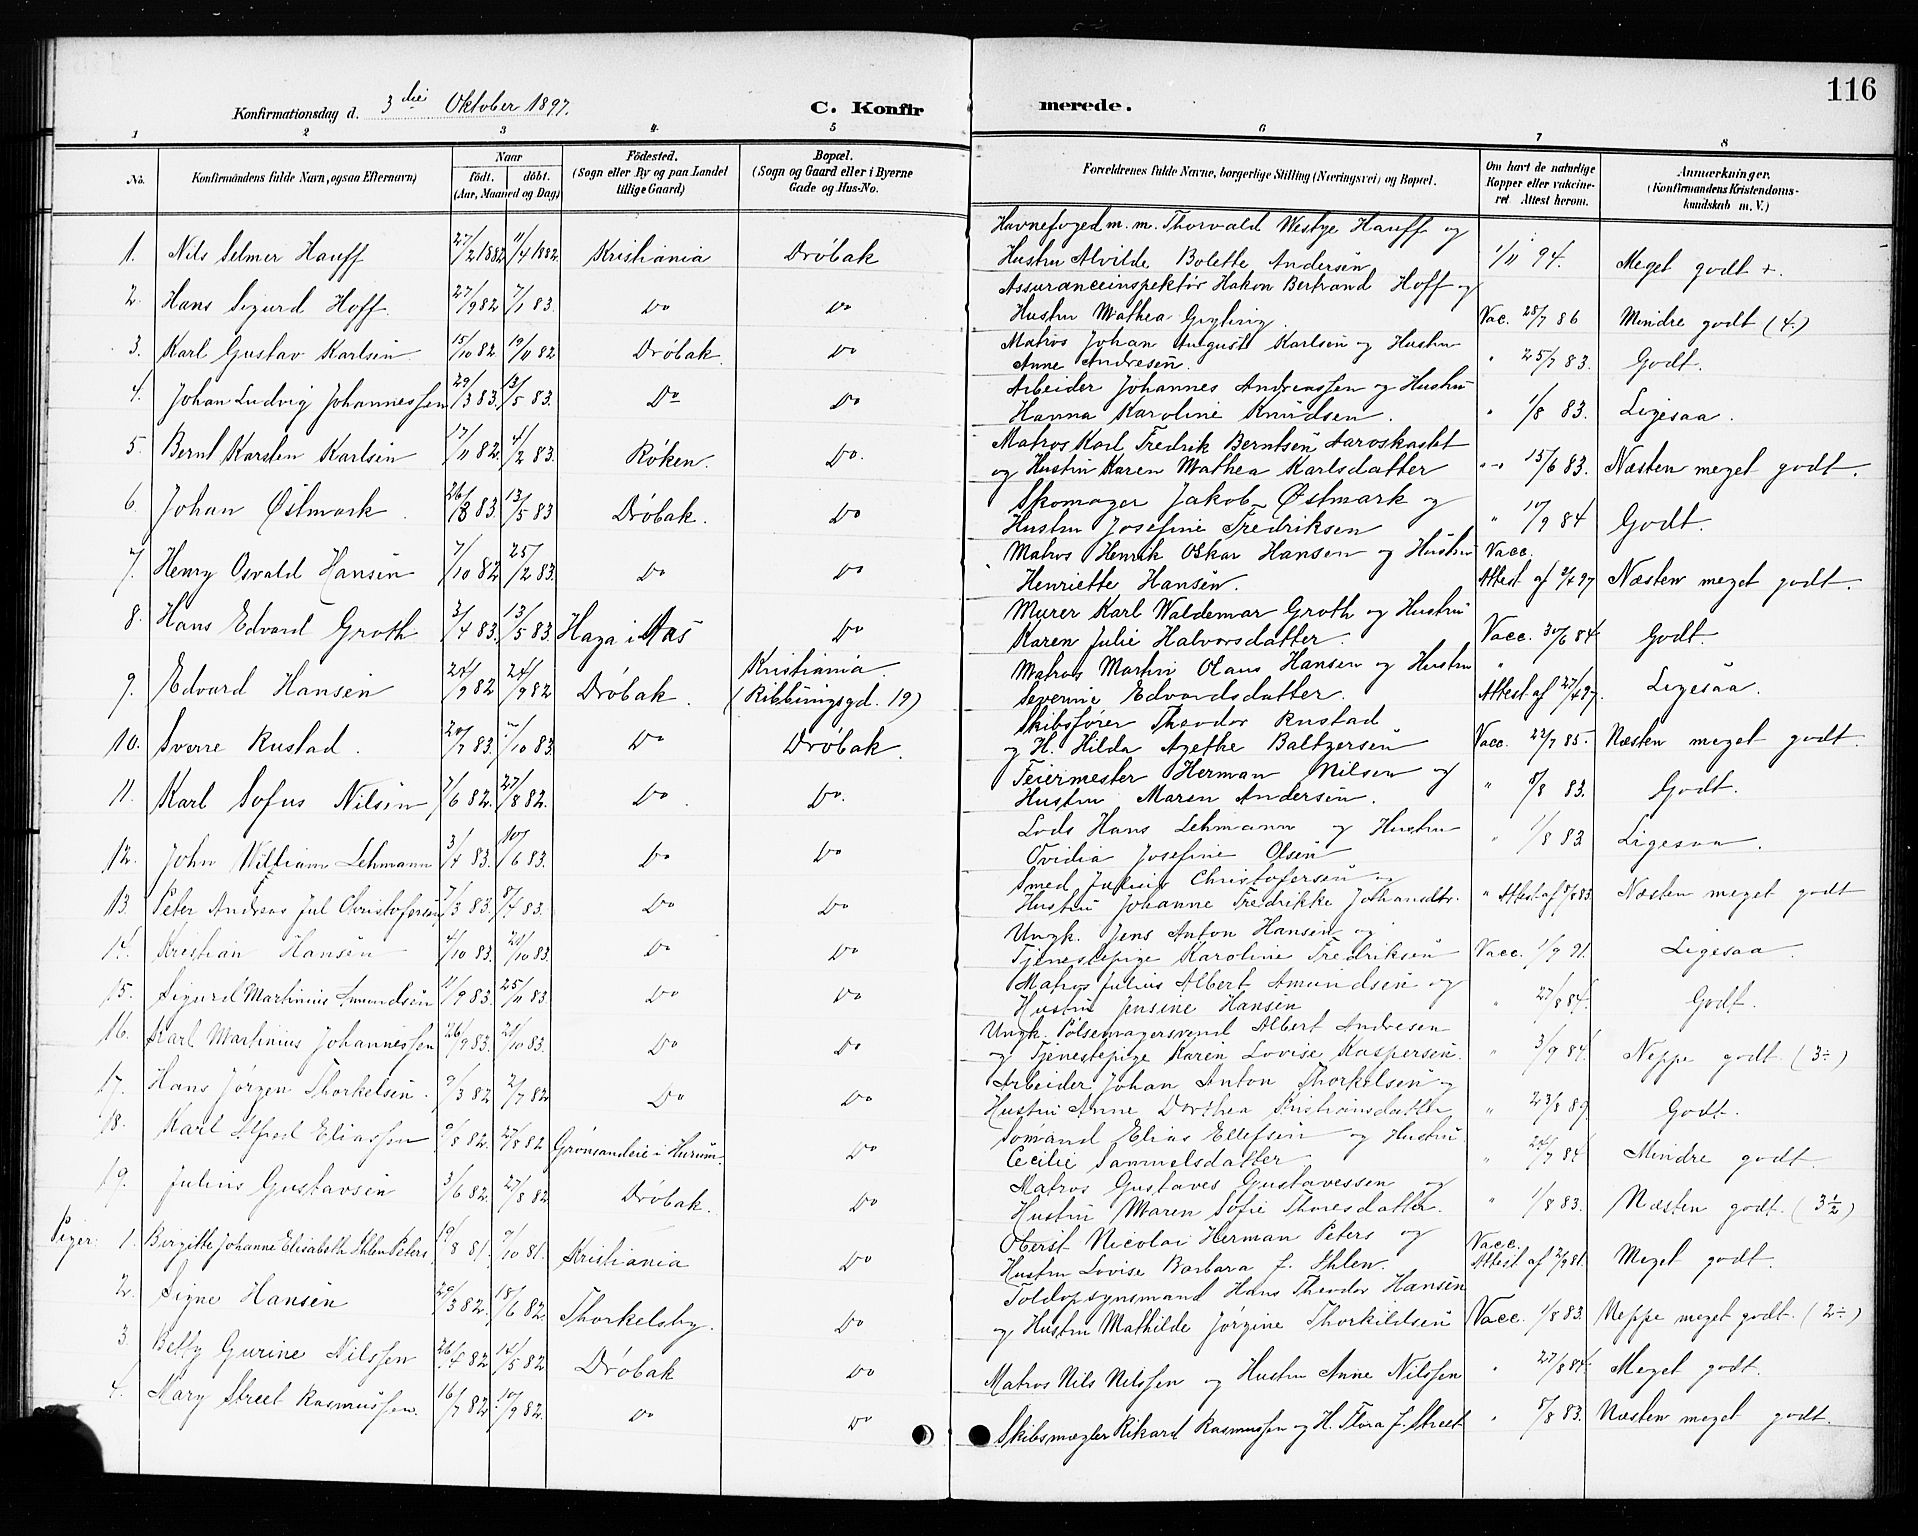 116
Konfirmationsdag d. 3die Oktober 1897. C. Konfirmerede.
1 2 3 4 5 6 7 8
No. Konfirmandens fulde Navn, ogsaa Efternavn) Naar födt. döbt. (Aar, Maaned og Dag) Födested. (Sogn eller By og paa Landet tillige Gaard) Bopæl. (Sogn og Gaard eller i Byerne Gade og Hus-No. Forældrenes fulde Navne, borgerlige Stilling (Næringsvei) og Bopæl. Om havt de naturlige Kopper eller vakcineret Attest herom. Anmærkninger. (Konfirmandens Kristendomskundskab m. V.)
1. Nils Selmer Hauff 27/2 1882 11/4 1882 Kristiania Dröbak Havnefoged m. m. Thorvald Westye Hauff og
Hustru Alvilde Bolette Andersen 1/11 94. Meget godt +.
2. Hans Sigurd Hoff 27/9 82 7/1 83. Do Do Assuranceinspektör Hakon Bertrand Hoff og
Hustru Mathea Vac. 28/7 86 Mindre godt (4.)
3. Karl Gustav Karlsen 15/10 82 19/11 82 Dröbak Do Matros Johan August Karlsen og Hustru
Anne Andresen. " 25/7 83. Godt.
4. Johan Ludvig Johannessen 29/3 83. 13/5 83. Do Do Arbeider Johannes Andreassen og Hustru
Hanna Karoline Knudsen. " 1/8 83. Ligesaa.
5. Bernt Karsten Karlsen 17/11 82. 4/2 83. Röken. Do. Matros Karl Fredrik Berntsen Aaroskastet
og Hustru Karen Mathea Karlsdatter " 15/6 83. Næsten meget godt.
6. Johan Östmark 26/3 83. 13/5 83 Dröbak. Do Skomager Jakob Östmark og
Hustru Josefine Fredriksen " 10/9 84 Godt.
7. Henry Osvald Hansen 7/10 82 25/2 83. Do Do Matros Henrik Oskar Hansen og Hustru Vacc.
Henriette Hansen. Attest af 97 Næsten meget godt.
8. Hans Edvard Groth 3/4 83. 13/5 83. Haga i Aas Do Murer Karl Waldemar Groth og Hustru
Karen Julie Halvorsdatter. Vacc. 30/6 84. Godt.
9. Edvard Hansen 9 82 24/9 82 Dröbak. Kristiania. (Ribbungsgd. 19) Matros Martin Olaus Hansen og Hustru "
Severine Edvardsdatter. Attest af 27/4 97. Ligesaa.
10. Sverre Rustad. 20/7 83. 7/10 83. Do Dröbak. Skibsförer Theodor Rustad
og H. Hilda Agethe Baltzersen Vacc. 22/7 85. Næsten meget godt.
11. Karl Sofus Nilsen 7/6 82. 27/8 82. Do Do. Feiermester Herman Nilsen og
Hustru Maren Andersen. " 8/8 83. Godt.
12. John William Lehmann 3/4 83. 10/6 83. Do Do Lods Hans Lehmann og Hustru
Ovidia Josefine Olsen " 1/8 83 Ligesaa.
13. Peter Andreas Jul Christofersen 7/3 83. 8/4 83. Do Do Smed Julius Christofersen og
Hustru Johanne Fredrikke Johandtr. " Attest af 8/8 83. Næsten meget godt
14. Kristian Hansen 4/10 83. 21/10 83. Do Do Ungk. Jens Anton Hansen og
Tjenestepige Karoline Fredriksen Vacc. 1/9 91. Ligesaa.
15. Sigurd Martinius Amundsen 11/9 83. 25/11 83. Do Do Matros Julius Albert Amundsen og
Hustru Jensine Hansen " 27/8 84. Godt.
16. Karl Martinius Johannessen 26/9 83. 21/10 83. Do Do Ungk. Pölsemagersvend Albert Andresen
og Tjenestepige Karen Lovise Kaspersen. " 3/9 84. Neppe godt. (3÷)
17. Hans Jörgen Thorkelsen. 9/3 82 2/7 82 Do Do Arbeider Johan Anton Thorkelsen og
Hustru Anne Dorthea Kristiansdatter " 23/8 89 Godt.
18. Karl Alfred Eliassen 9/8 82. 27/8 82 Grönsandeie i Hurum. Do Sömand Elias Ellefsen og Hustru
Cecilie Samuelsdatter " 24/7 84 Mindre godt.
19. Julius Gustavsen 3/6 82. 27/8 82. Dröbak. Do Matros Gustaves Gustavessen og
Hustru Maren Sofie Thoresdatter. " 1/8 83. Næsten godt. (3 1/2)
Piger: 1. Birgitte Johanne Elisabeth Ihlen Peters 19/8 81. 9/10 81. Kristiania Do Oberst Nicolai Herman Peters og Vacc.
Hustru Lovise Barbara f. Ihlen. Attest af 2/9 81. Meget godt.
2. Signe Hansen 29/3 82. 18/6 82. Thorkelsby. Do Toldopsynsmand Hans Theodor Hansen
og Hustru Mathilde Jörgine Thorkildsen Vacc. 1/8 83. Neppe meget godt. (2÷)
3. Betty Gurine Nilssen 26/4 82 14/5 82. Dröbak Do Matros Nils Nilssen og Hustru Anne Nilssen " 27/8 84. Meget godt.
4. Mary Street Rasmussen. 16/7 82. 10/9 82. Do Do Skibsmægler Rikard Rasmussen og H. Flora f. Street " 8/8 83. Næsten meget godt.